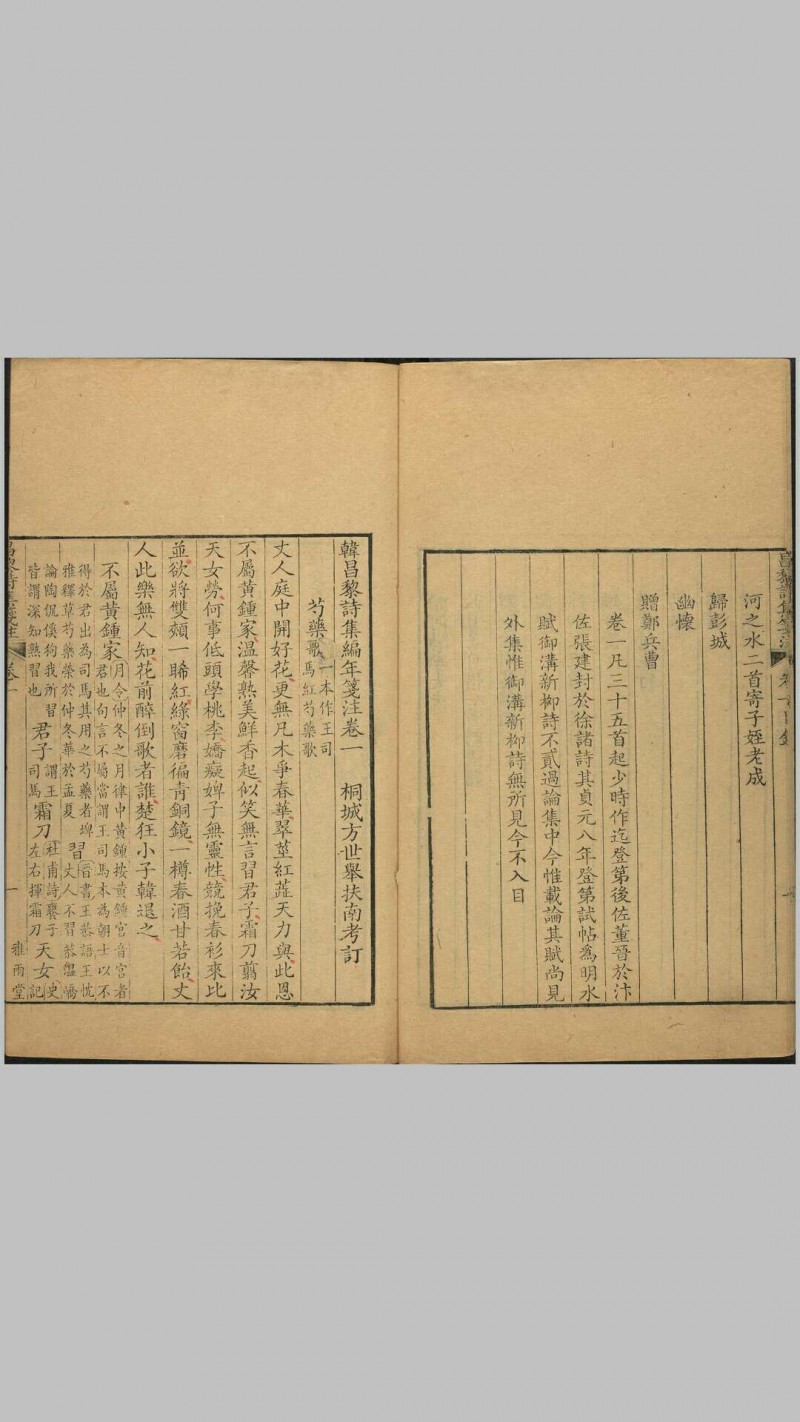 河之水二首寄子姪老成
歸彭城
幽懷
贈鄭兵曹
卷一凡三十五首起少時作迄登第後佐董晉於汴
佐張建封於徐諸詩其貞元八年登第試帖爲明水
賦御溝新柳詩不貳過論集中今惟載論其賦尚見
外集惟御溝新柳詩無所見今不入目
韓昌黎詩集編年箋注卷一 桐城方世舉扶南考訂
芍藥歌一本作王司馬紅芍藥歌
丈人庭中開好花更無凡木爭春華翠莖紅蕋天力與此恩
不屬黃鍾家温馨熟美鮮香起似笑無言習君子霜刀翦汝
天女勞何事低頭學桃李嬌癡婢子無靈性競挽春衫來比
並欲將雙頰一睎紅綠窗磨徧青銅鏡一樽春酒甘若飴丈
人此樂無人知花前醉倒歌者誰楚狂小子韓退之
不屬黃鍾家月令仲冬之月律中黃鍾按黃鍾宮音宮者君也句言不屬當謂王司馬本為朝士以不
得於君出為司馬其用之芍藥者埤雅釋草芍藥榮於仲冬華於孟夏 習晉書王恭語王忱丈人不習恭
論陶侃傒狗我所習皆謂深知熟習也 君子謂王司馬 霜刀杜甫詩饔子左右揮霜刀 天女史記
卷一
一
雅雨堂